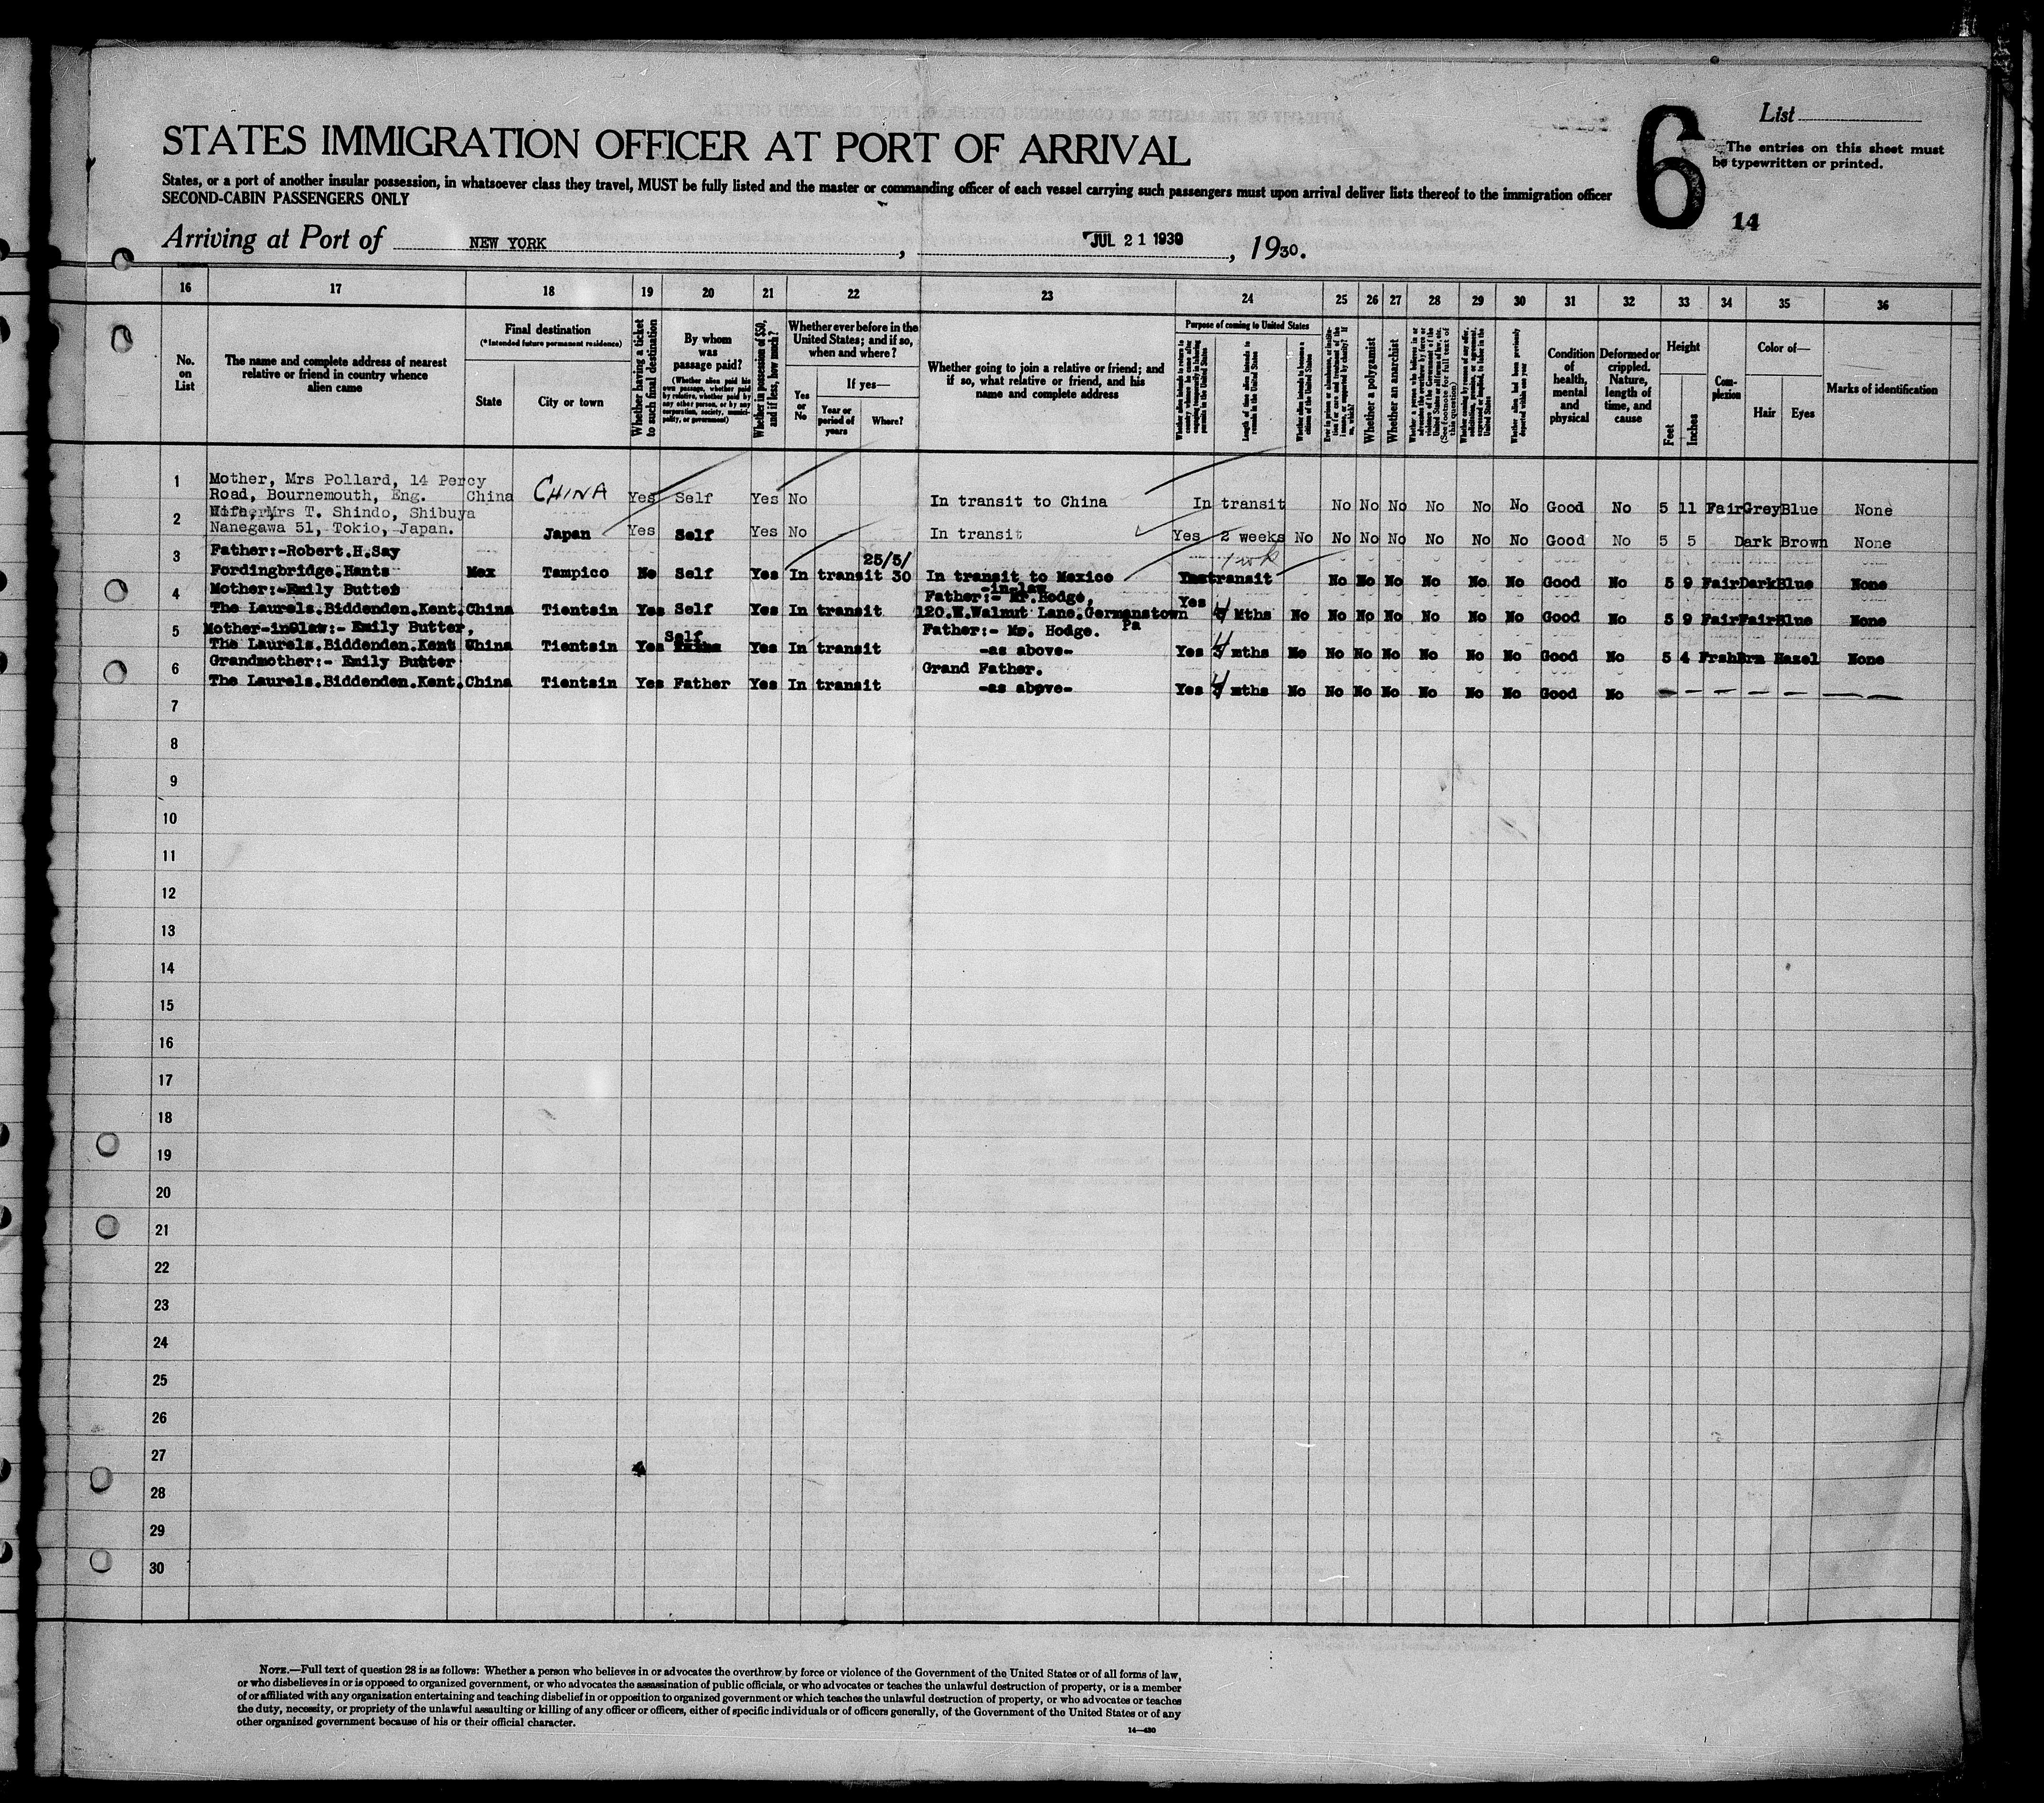 List
6
The entries on this sheet must
be typewritten or printed.
14
STATES IMMIGRATION OFFICER AT PORT OF ARRIVAL
States, or a port of another insular possession, in whatsoever class they travel, MUST be fully listed and the master or commanding officer of each vessel carrying such passengers must upon arrival deliver lists thereof to the immigration officer
SECOND-CABIN PASSENGERS ONLY
Arriving at Port of NEW YORK, JUL 21 1930, 1930.
16 17 18 19 20 21 22 23 24 25 26 27 28 29 30 31 32 33 34 35 36
No.
on
List
The name and complete address of nearest
relative or friend in country whence
alien came
Final destination
(*Intended future permanent residence)
State
City or town
Whether having a ticket
to such final destination
By whom
was
passage paid?
(Whether alien paid his
own passage, whether paid
by relative, whether paid by
any other person, or by any
corporation, society, munici-
pality, or government)
Whether in possession of $50,
and if less, how much?
Whether ever before in the
United States; and if so,
when and where?
Yes
or
No
If yes—
Year or
period of
years
Where?
Whether going to join a relative or friend; and
if so, what relative or friend, and his
name and complete address
Purpose of coming to United States
Whether alien intends to return to
country whence he came after
engaging temporarily in laboring
pursuits in the United States
Length of time alien intends to
remain in the United States
Whether alien intends to become a
citizen of the United States
Ever in prison or almshouse, or institu-
tion for care and treatment of the
insane, or supported by charity? If
so, which?
Whether a polygamist
Whether an anarchist
Whether a person who believes in or
advocates the overthrow by force or
violence of the Government of the
United States or all forms of law, etc.
(See footnote for full text of
this question)
Whether coming by reason of any offer,
solicitation, promise, or agreement,
expressed or implied, to labor in the
United States
Whether alien had been previously
deported within one year
Condition
of
health,
mental
and
physical
Deformed or
crippled.
Nature,
length of
time, and
cause
Height
Feet
Inches
Com-
plexion
Color of—
Hair
Eyes
Marks of identification
1 Mother, Mrs Pollard, 14 Percy
Road, Bournemouth, Eng. China CHINA Yes Self Yes No In transit to China In transit No No No No No No Good No 5 11 Fair Grey Blue None
2 Mrs T. Shindo, Shibuya
Nanegawa 51, Tokio, Japan. Japan Yes Self Yes No In transit Yes 2 weeks No No No No No No No Good No 5 5 Dark Brown None
3 Father:-Robert.H.Say 25/5/ 1 wk
Fordingbridge.Hants Mex Tampico No Self Yes In transit 30 In transit to Mexico transit No No No No No No Good No 5 9 Fair Dark Blue None
4 Mother:-Emily Butter Father:-in-law Mr.Hodge,
The Laurels.Biddenden.Kent. China Tientsin Yes Self Yes In transit 120.W.Walnut Lane.Germanstown Pa Yes 4 Mths No No No No No No No Good No 5 9 Fair Fair Blue None
5 Mother-in-law:- Emily Butter, Father:- Mr. Hodge.
The Laurels.Biddenden.Kent China Tientsin Yes Self Yes In transit -as above- Yes 4 mths No No No No No No No Good No 5 4 Frsh Brn Hazel None
6 Grandmother:- Emily Butter Grand Father.
The Laurels.Biddenden.Kent. China Tientsin Yes Father Yes In transit -as above- Yes 4 mths No No No No No No No Good No — — — — — — —
7
8
9
10
11
12
13
14
15
16
17
18
19
20
21
22
23
24
25
26
27
28
29
30
NOTE.—Full text of question 28 is as follows: Whether a person who believes in or advocates the overthrow by force or violence of the Government of the United States or of all forms of law,
or who disbelieves in or is opposed to organized government, or who advocates the assassination of public officials, or who advocates or teaches the unlawful destruction of property, or is a member
of or affiliated with any organization entertaining and teaching disbelief in or opposition to organized government or which teaches the unlawful destruction of property, or who advocates or teaches
the duty, necessity, or propriety of the unlawful assaulting or killing of any officer or officers, either of specific individuals or of officers generally, of the Government of the United States or of any
other organized government because of his or their official character.
14—430